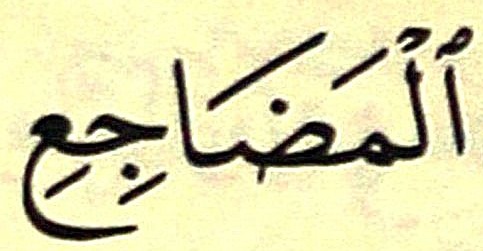 ٱلْمَضَاجِعِ